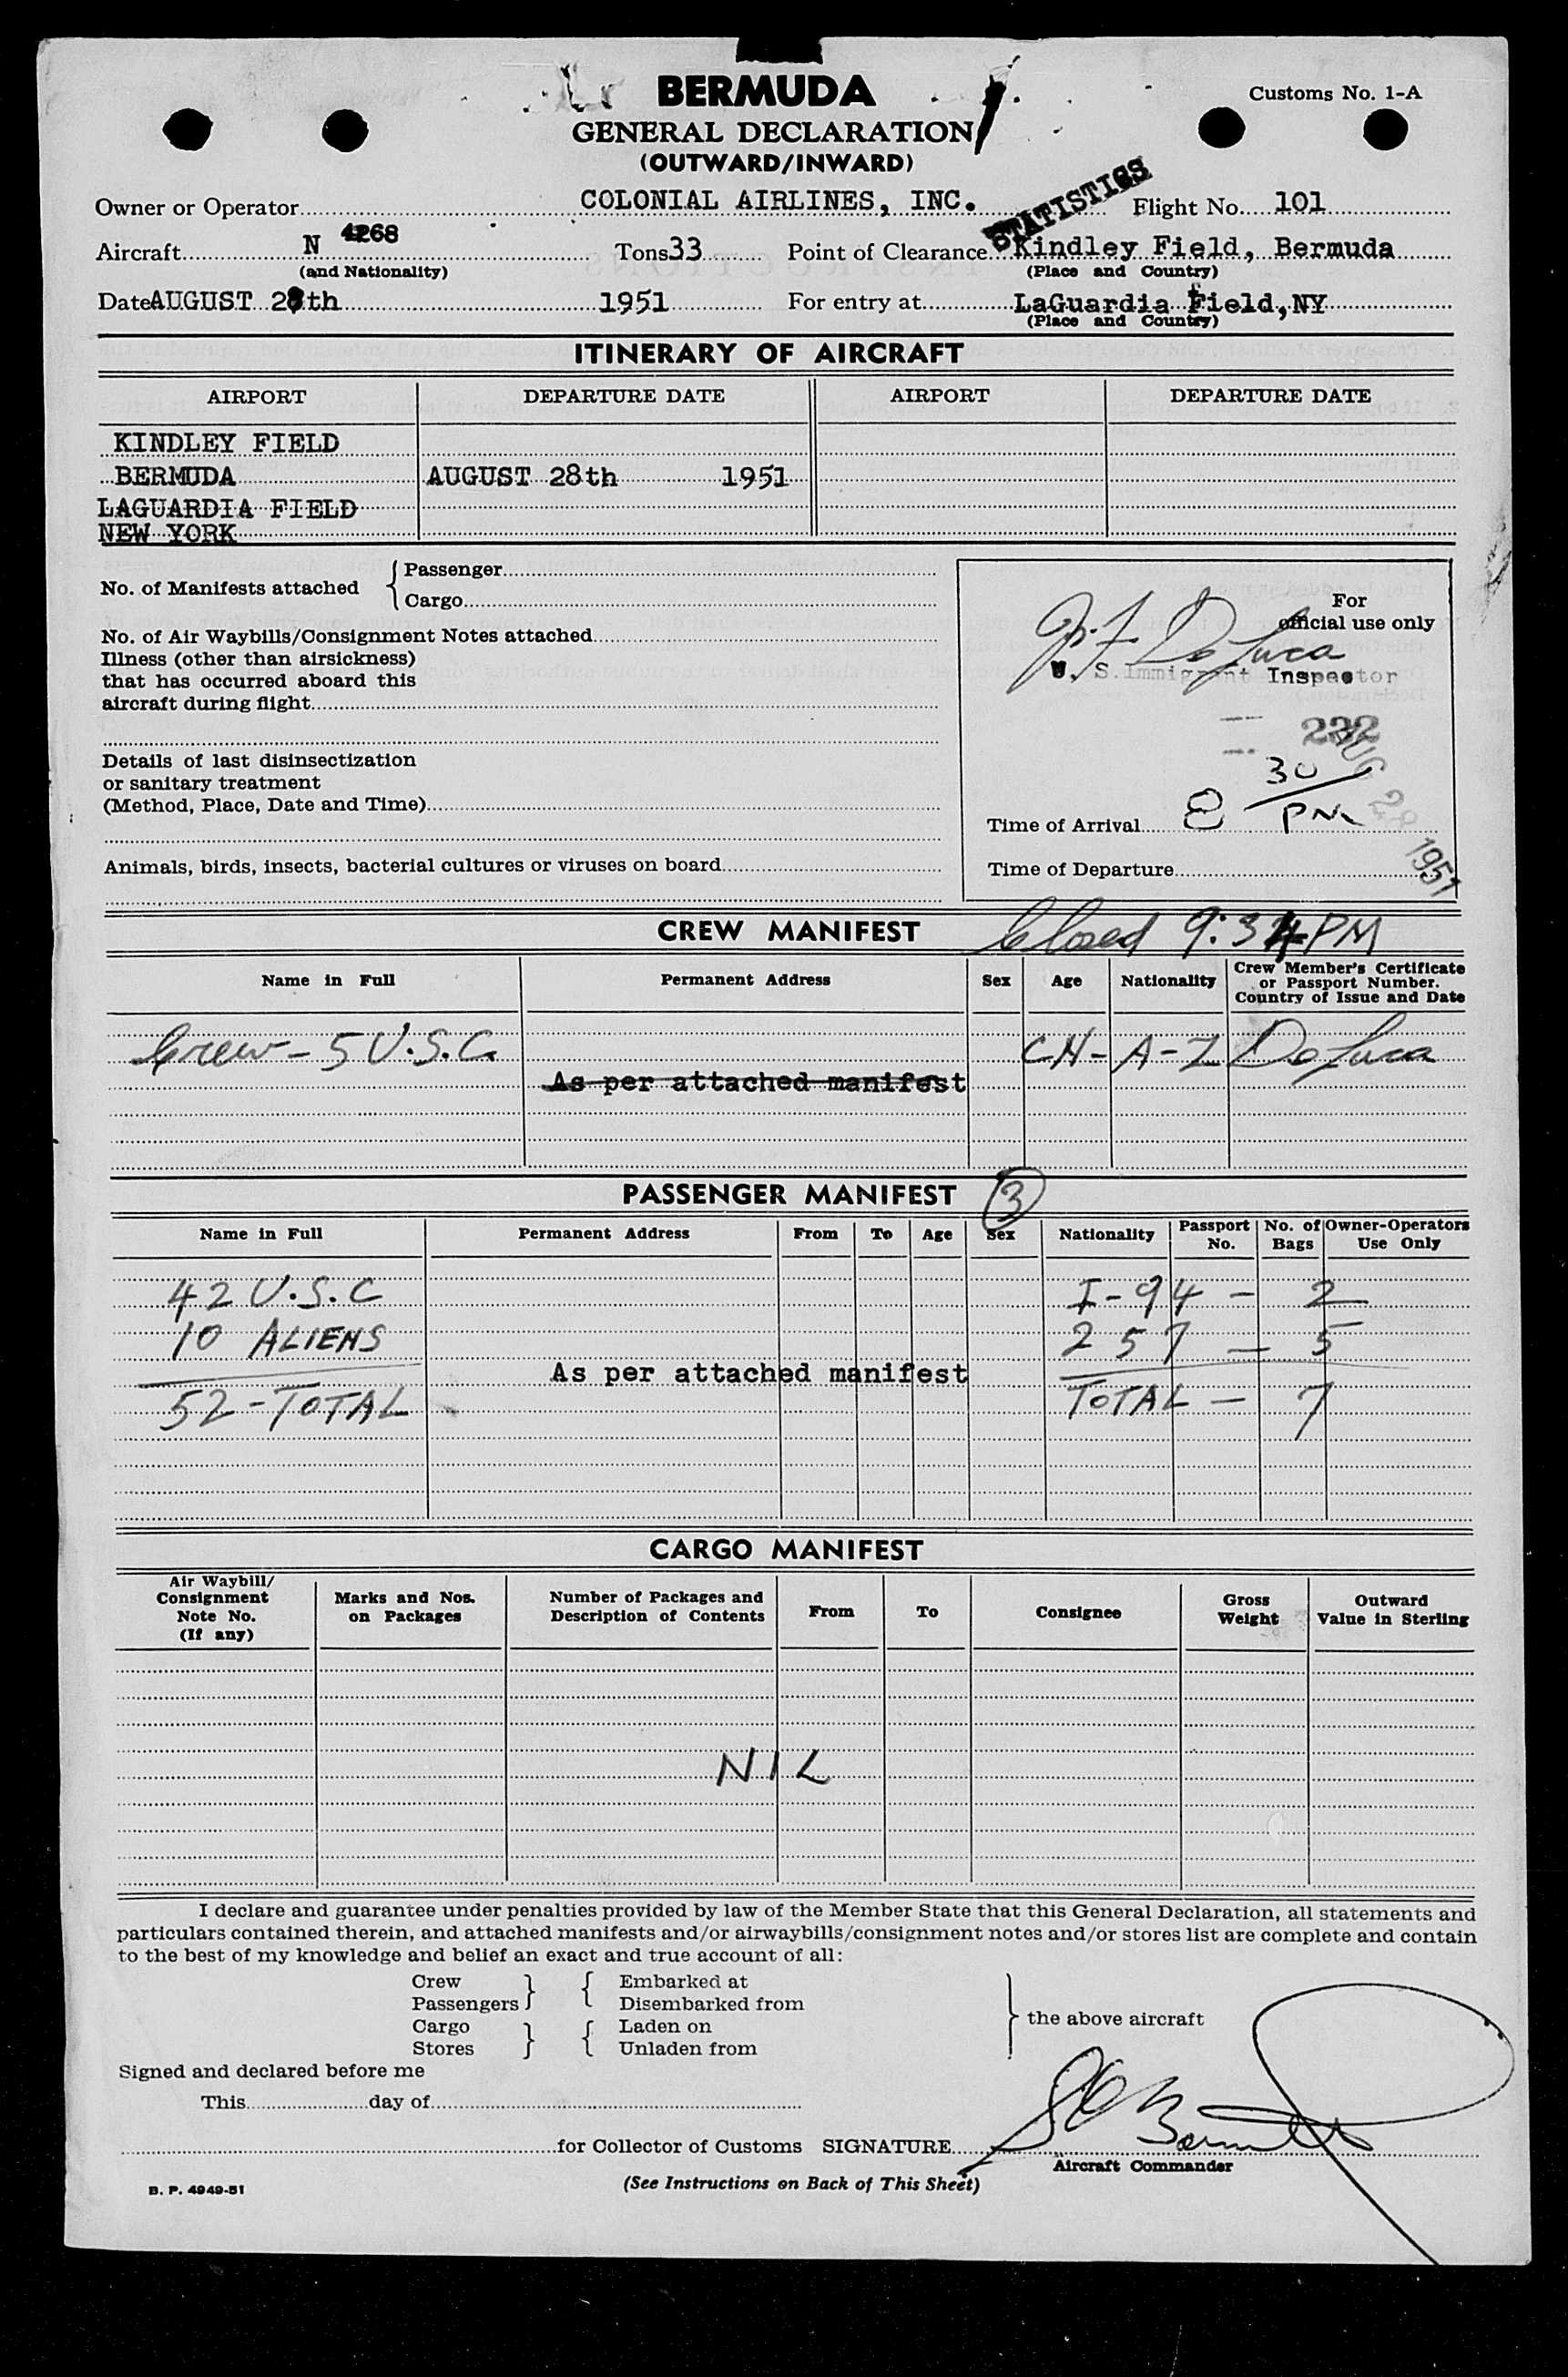 BERMUDA
Customs No. 1-A
GENERAL DECLARATION
(OUTWARD/INWARD)
STATISTICS
Owner or Operator COLONIAL AIRLINES, INC. Flight No. 101
Aircraft N 4268 Tons 33 Point of Clearance Kindley Field, Bermuda
(and Nationality) (Place and Country)
Date AUGUST 28th 1951 For entry at LaGuardia Field, NY
(Place and Country)
ITINERARY OF AIRCRAFT
AIRPORT DEPARTURE DATE AIRPORT DEPARTURE DATE
KINDLEY FIELD
BERMUDA AUGUST 28th 1951
LAGUARDIA FIELD
NEW YORK
No. of Manifests attached { Passenger
Cargo
No. of Air Waybills/Consignment Notes attached
Illness (other than airsickness)
that has occurred aboard this
aircraft during flight
Details of last disinsectization
or sanitary treatment
(Method, Place, Date and Time)
Animals, birds, insects, bacterial cultures or viruses on board
For
official use only
DeLuca
U. S. Immigrant Inspector
232
AUG 28 1951
Time of Arrival 8 30/PM
Time of Departure
Closed 9:34 PM
CREW MANIFEST
Name in Full Permanent Address Sex Age Nationality Crew Member's Certificate or Passport Number. Country of Issue and Date
Crew - 5 U.S.C. CH- A-Z DeLuca
As per attached manifest
PASSENGER MANIFEST 3
Name in Full Permanent Address From To Age Sex Nationality Passport No. No. of Bags Owner-Operators Use Only
42 U.S.C I-94 - 2
10 ALIENS 257 - 5
As per attached manifest
52 - TOTAL TOTAL - 7
CARGO MANIFEST
Air Waybill/ Consignment Note No. (If any) Marks and Nos. on Packages Number of Packages and Description of Contents From To Consignee Gross Weight Outward Value in Sterling
NIL
I declare and guarantee under penalties provided by law of the Member State that this General Declaration, all statements and
particulars contained therein, and attached manifests and/or airwaybills/consignment notes and/or stores list are complete and contain
to the best of my knowledge and belief an exact and true account of all:
Crew } { Embarked at
Passengers } { Disembarked from
Cargo } { Laden on
Stores } { Unladen from
} the above aircraft
Signed and declared before me
This day of
for Collector of Customs SIGNATURE
Aircraft Commander
(See Instructions on Back of This Sheet)
B. P. 4949-51